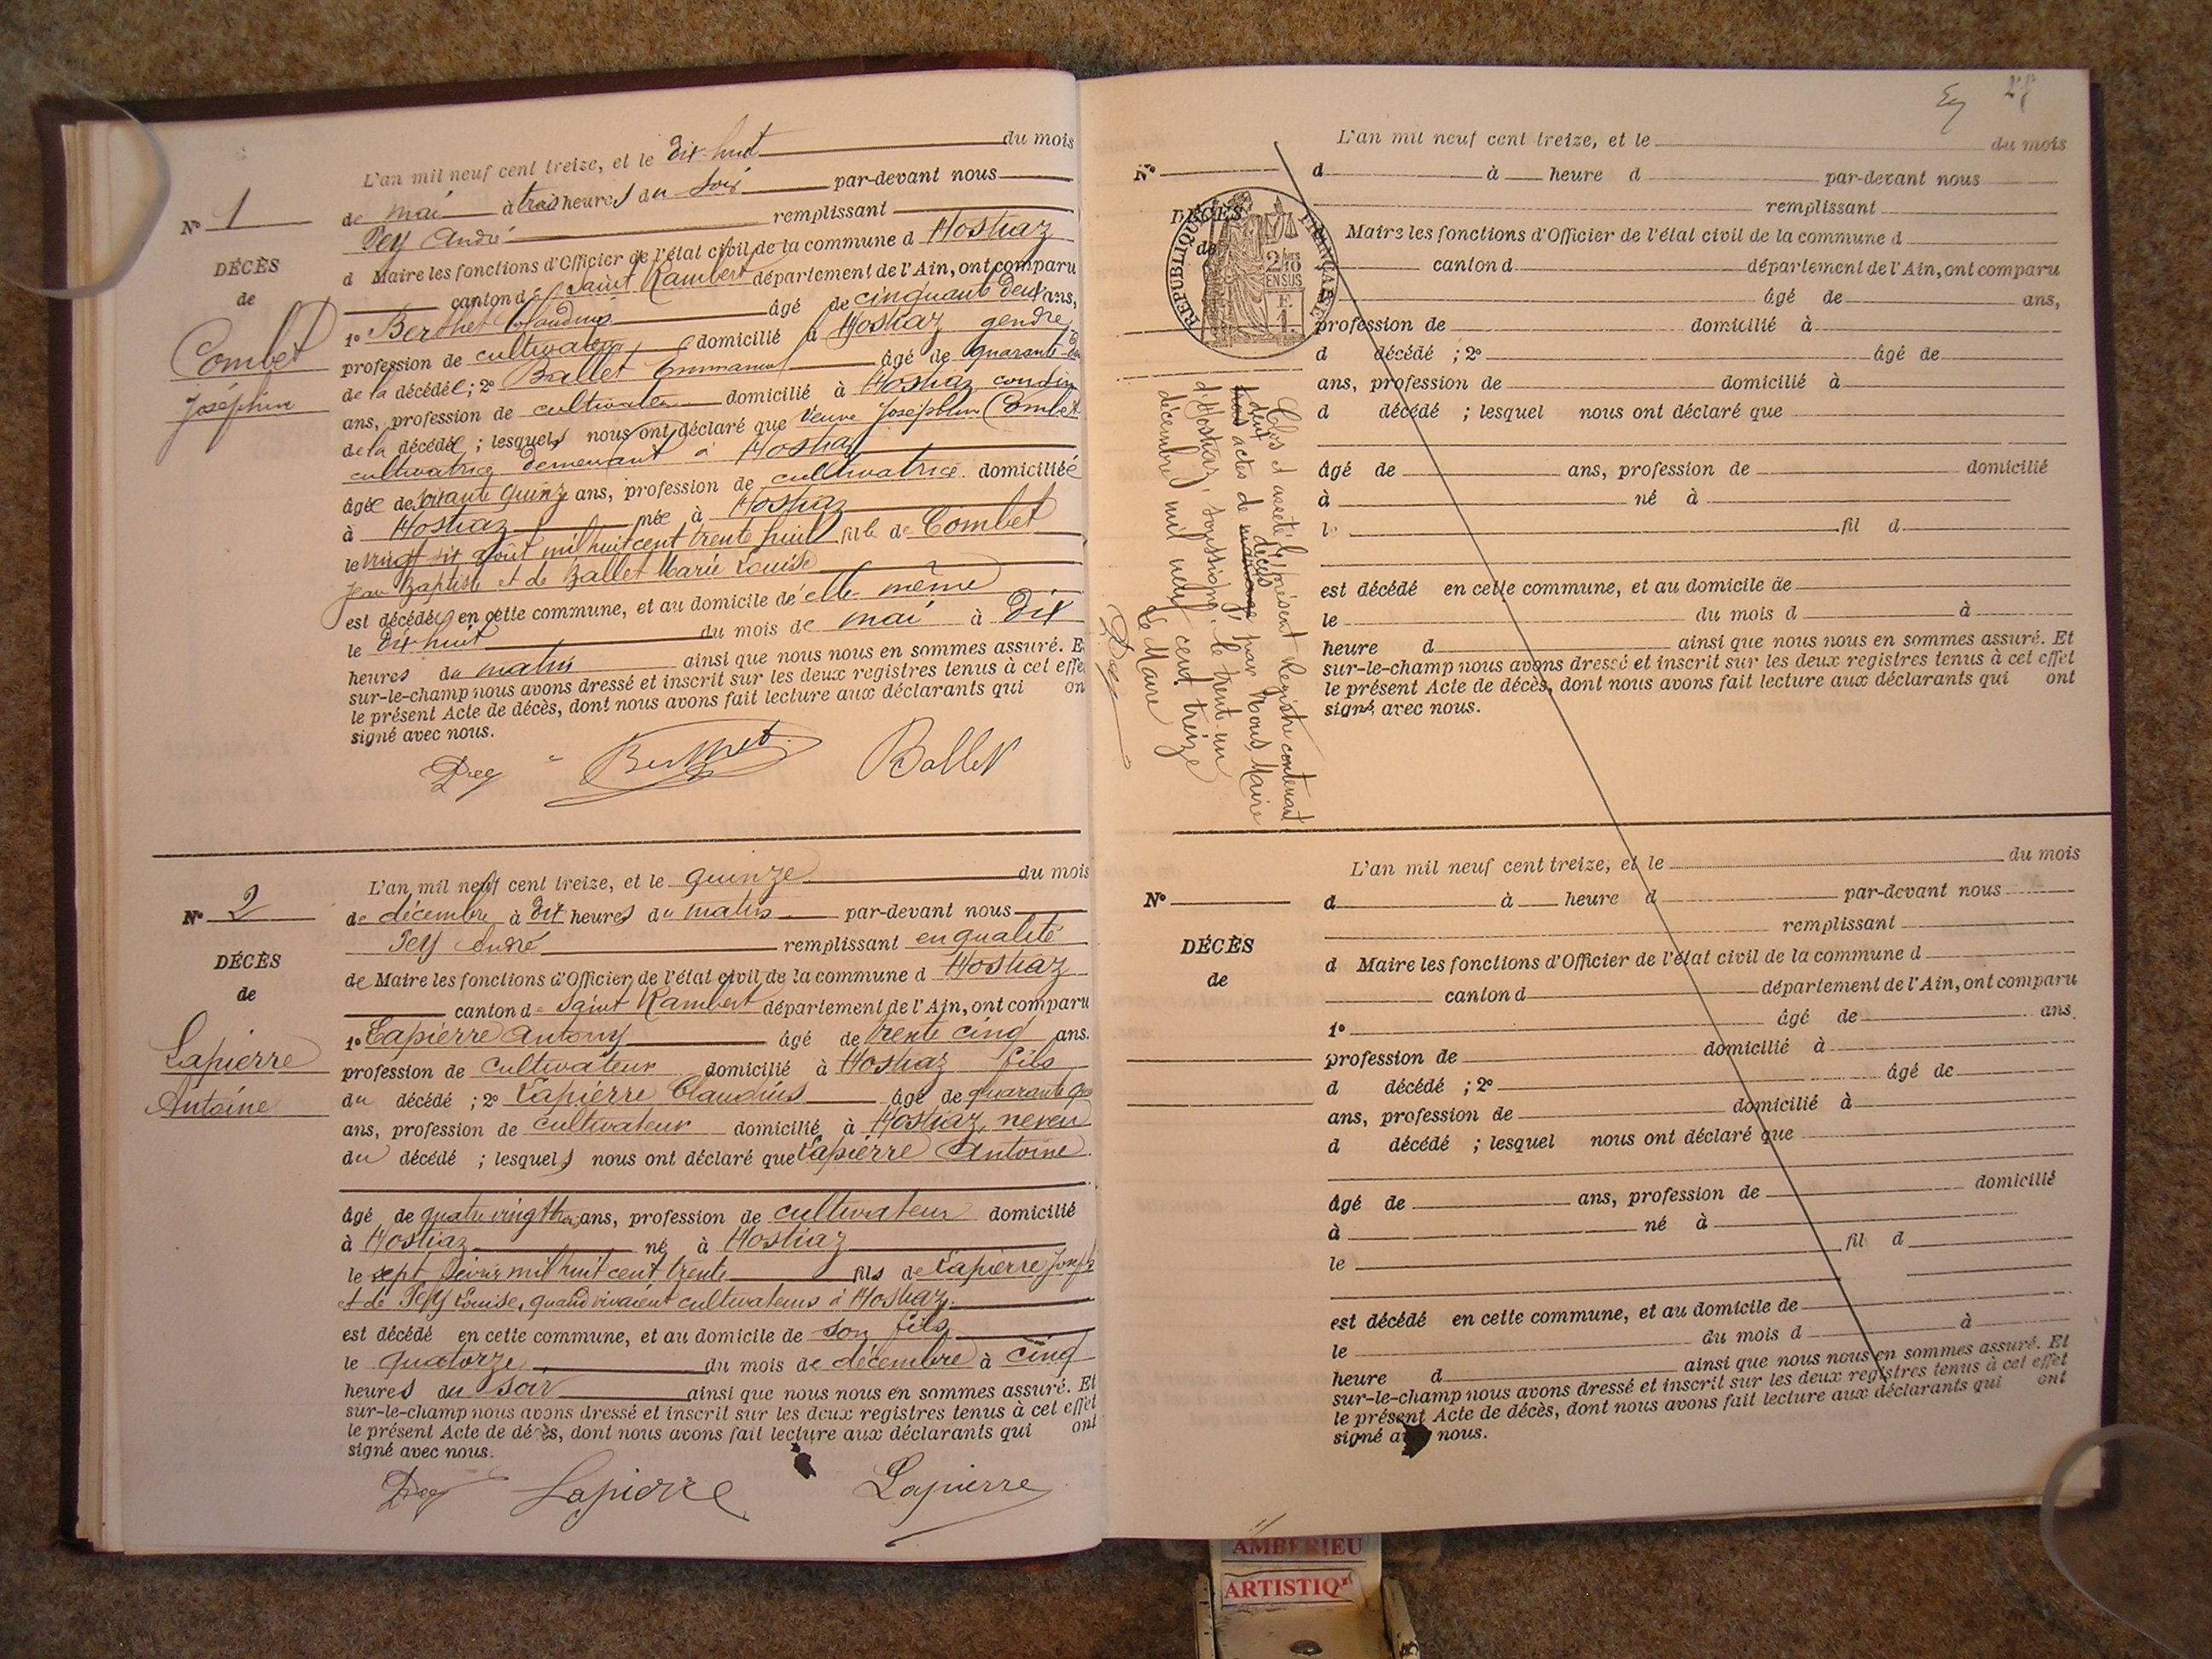 L'an mil neuf cent treize, et le dix huit du mois
de mai à trois heures du soir par-devant nous
Pey André remplissant
d Maire les fonctions d'Officier de l'état civil de la commune d Hostiaz
canton de Saint Rambert département de l'Ain, ont comparu
1º Berthet Claudius âgé de cinquante deux ans,
profession de cultivateur domicilié à Hostiaz gendre
de la décédée; 2º Ballet Emmanuel âgé de quarante
ans, profession de cultivateur domicilié à Hostiaz cousin
de la décédée ; lesquels nous ont déclaré que Veuve Joséphine Combet
cultivatrice demeurant à Hostiaz
âgée de soixante quinze ans, profession de cultivatrice domiciliée
à Hostiaz née à Hostiaz
le vingt six août mil huit cent trente huit fille de Combet
Jean Baptiste et de Ballet Marie Louise
est décédée en cette commune, et au domicile de elle même
le dix huit du mois de mai à dix
heures du matin ainsi que nous nous en sommes assuré. E
sur-le-champ nous avons dressé et inscrit sur les deux registres tenus à cet effe
le présent Acte de décès, dont nous avons fait lecture aux déclarants qui on
signé avec nous.
Pey Berthet Ballet
Nº 1
DÉCÈS
de
Combet
Joséphine
L'an mil neuf cent treize, et le quinze du mois
de décembre à dix heures du matin par-devant nous
Pey André remplissant en qualité
de Maire les fonctions d'Officier de l'état civil de la commune d Hostiaz
canton de Saint Rambert département de l'Ain, ont comparu
1º Lapierre Antony âgé de trente cinq ans.
profession de cultivateur domicilié à Hostiaz fils
du décédé ; 2º Lapierre Claudius âgé de quarante
ans, profession de cultivateur domicilié à Hostiaz, neveu
du décédé ; lesquels nous ont déclaré que Lapierre Antoine
âgé de quatre vingt trois ans, profession de cultivateur domicilié
à Hostiaz né à Hostiaz
le sept février mil huit cent trente fils de Lapierre Joseph
et de Pey Louise, quand vivaient cultivateurs à Hostiaz.
est décédé en cette commune, et au domicile de son fils
le quatorze du mois de décembre à cinq
heures du soir ainsi que nous nous en sommes assuré. Et
sur-le-champ nous avons dressé et inscrit sur les deux registres tenus à cet effet
le présent Acte de décès, dont nous avons fait lecture aux déclarants qui ont
signé avec nous.
Pey Lapierre Lapierre
Nº 2
DÉCÈS
de
Lapierre
Antoine
28
L'an mil neuf cent treize, et le du mois
d à heure d par-devant nous
remplissant
Maire les fonctions d'Officier de l'état civil de la commune d
canton d département de l'Ain, ont comparu
âgé de ans,
profession de domicilié à
d décédé ; 2º âgé de
ans, profession de domicilié à
d décédé ; lesquel nous ont déclaré que
âgé de ans, profession de domicilié
à né à
l fil d
est décédé en cette commune, et au domicile de
le du mois d à
heure d ainsi que nous nous en sommes assuré. Et
sur-le-champ nous avons dressé et inscrit sur les deux registres tenus à cet effet
le présent Acte de décès, dont nous avons fait lecture aux déclarants qui ont
signé avec nous.
Nº
DÉCÈS
de
RÉPUBLIQUE FRANÇAISE
2/10
EN SUS
F.
1.
Clos et arrêté le présent Registre contenant
deux
trois actes de mariage par Nous, Maire
décès
d'Hostiaz, soussigné, le trente-un
décembre mil neuf cent treize
Le Maire
Pey
L'an mil neuf cent treize, et le du mois
d à heure d par-devant nous
remplissant
d Maire les fonctions d'Officier de l'état civil de la commune d
canton d département de l'Ain, ont comparu
1º âgé de ans.
profession de domicilié à
d décédé ; 2º âgé de
ans, profession de domicilié à
d décédé ; lesquel nous ont déclaré que
âgé de ans, profession de domicilié
à né à
le fil d
est décédé en cette commune, et au domicile de
le du mois d à
heure d ainsi que nous nous en sommes assuré. Et
sur-le-champ nous avons dressé et inscrit sur les deux registres tenus à cet effet
le présent Acte de décès, dont nous avons fait lecture aux déclarants qui ont
signé a nous.
Nº
DÉCÈS
de
AMBERIEU
ARTISTIQ